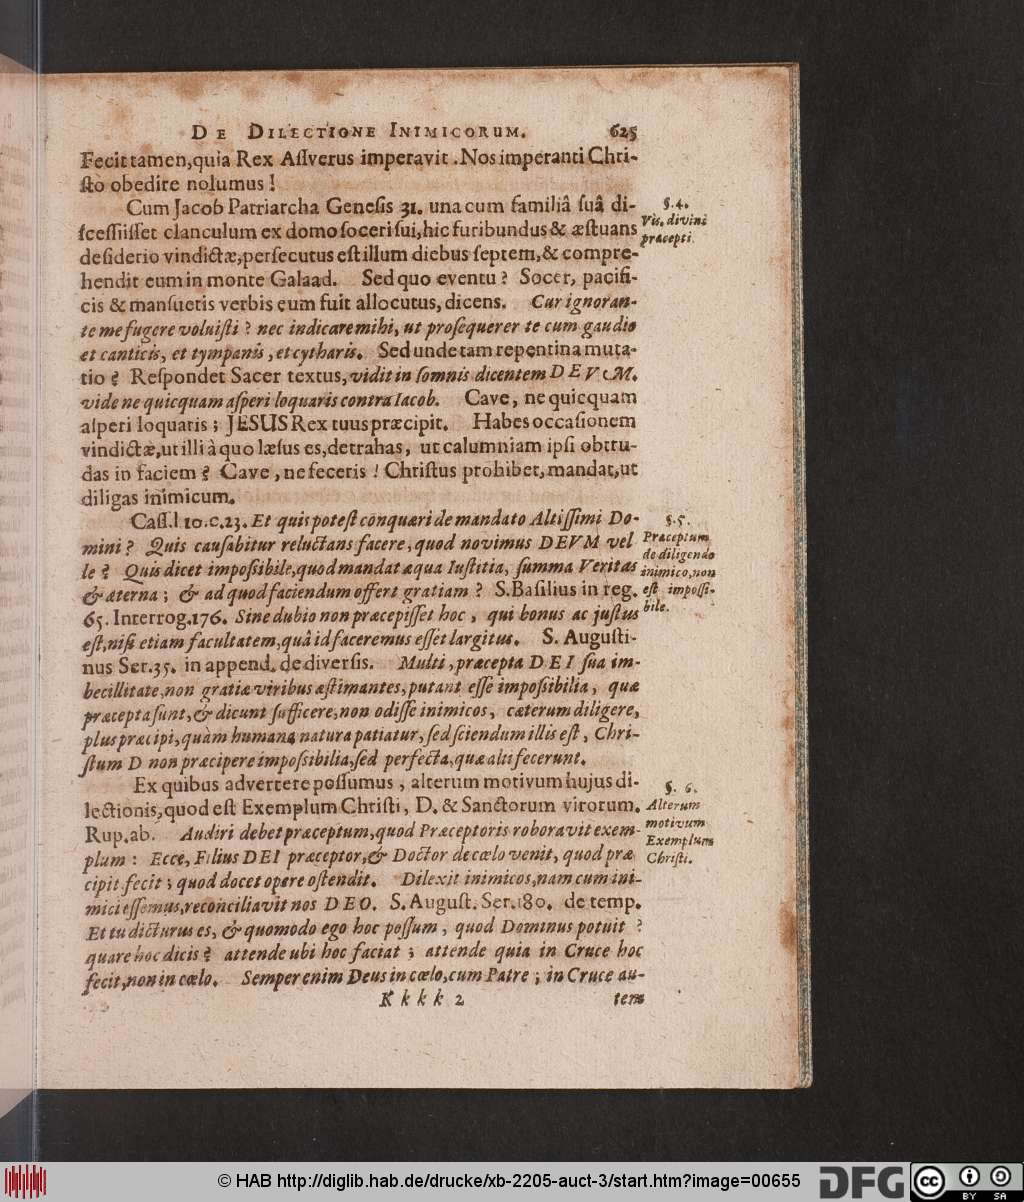 De Dilectione Inimicorum. 625
Fecit tamen, quia Rex Aſſverus imperavit. Nos imperanti Chri-
ſto obedire nolumus!
Cum Jacob Patriarcha Geneſis 31. una cum familiâ ſuâ di-
ſceſſiiſſet clanculum ex domo ſoceri ſui, hic furibundus & æſtuans
deſiderio vindictæ, perſecutus eſt illum diebus ſeptem, & compre-
hendit eum in monte Galaad. Sed quo eventu? Socer, pacifi-
cis & manſuetis verbis eum fuit allocutus, dicens. Cur ignoran-
te me fugere voluiſti? nec indicare mihi, ut proſequerer te cum gaudio
et canticis, et tympanis, et cytharis. Sed unde tam repentina muta-
tio? Reſpondet Sacer textus, vidit in ſomnis dicentem DEVM.
vide ne quicquam aſperi loquaris contra Iacob. Cave, ne quicquam
aſperi loquaris; JESUS Rex tuus præcipit. Habes occaſionem
vindictæ, ut illi à quo læſus es, detrahas, ut calumniam ipſi obtru-
das in faciem? Cave, ne feceris! Chriſtus prohibet, mandat, ut
diligas inimicum.
§. 4.
Vis. divini
præcepti.
Caſſ. l 10. c. 23. Et quis poteſt conquæri de mandato Altiſſimi Do-
mini? Quis cauſabitur reluctans facere, quod novimus DEVM vel
le? Quis dicet impoſsibile, quod mandat æqua Iuſtitia, ſumma Veritas
& æterna; & ad quod faciendum offert gratiam? S. Baſilius in reg.
65. Interrog. 176. Sine dubio non præcepiſſet hoc, qui bonus ac juſtus
eſt, niſi etiam facultatem, quâ id faceremus eſſet largitus. S. Auguſti-
nus Ser. 35. in append. de diverſis. Multi, præcepta DEI ſua im-
becillitate, non gratiæ viribus æſtimantes, putant eſſe impoſsibilia, quæ
præcepta ſunt, & dicunt ſufficere, non odiſſe inimicos, cæterum diligere,
plus præcipi, quam humana natura patiatur, ſed ſciendum illis eſt, Chri-
ſtum D non præcipere impoſsibilia, ſed perfecta, quæ alii fecerunt.
§. 5.
Præceptum
de diligendo
inimico, non
eſt impoſſi-
bile.
Ex quibus advertere poſſumus, alterum motivum hujus di-
lectionis, quod eſt Exemplum Chriſti, D. & Sanctorum virorum.
Rup. ab. Audiri debet præceptum, quod Præceptoris roboravit exem-
plum: Ecce, Filius DEI præceptor, & Doctor de cœlo venit, quod præ
cipit fecit; quod docet opere oſtendit. Dilexit inimicos, nam cum ini-
mici eſſemus, reconciliavit nos DEO. S. Auguſt. Ser. 180. de temp.
Et tu dicturus es, & quomodo ego hoc poſſum, quod Dominus potuit?
quare hoc dicis? attende ubi hoc faciat; attende quia in Cruce hoc
fecit, non in cœlo. Semper enim Deus in cœlo, cum Patre; in Cruce au-
§. 6.
Alterum
motivum
Exemplum
Chriſti.
Kkkk 2 tem
© HAB http://diglib.hab.de/drucke/xb-2205-auct-3/start.htm?image=00655
DFG cc BY SA